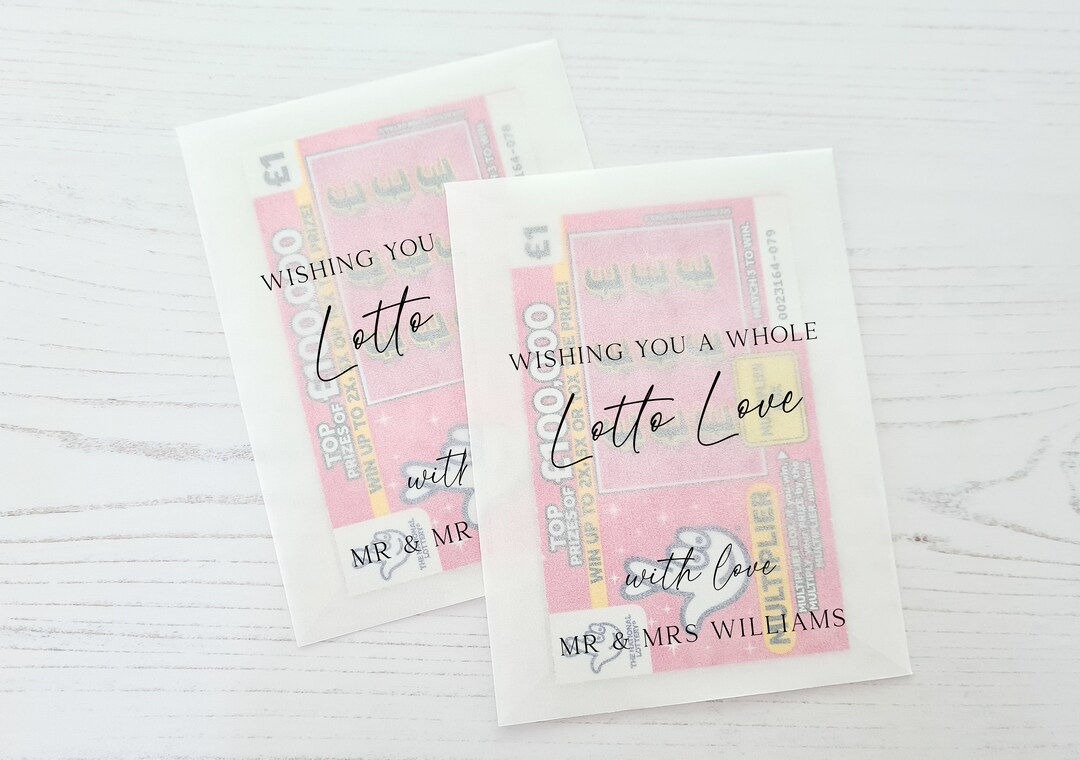 WISHING YOU
Lotto
with
MR & MR
£1
TOP
PRIZES OF £100,000
WIN UP TO 2X, 5X OR 10X THE PRIZE!
THE NATIONAL
LOTTERY
164-078
3 TO WIN
WISHING YOU A WHOLE
Lotto Love
with love
MR & MRS WILLIAMS
£1
TOP
PRIZES OF £100,000
WIN UP TO 2X, 5X OR 10X THE PRIZE!
MATCH 3 TO WIN.
0023164-079
MULTIPLIER
MULTIPLIER BOX:
MULTIPLY
MULTIPLIER number.
THE NATIONAL
LOTTERY®